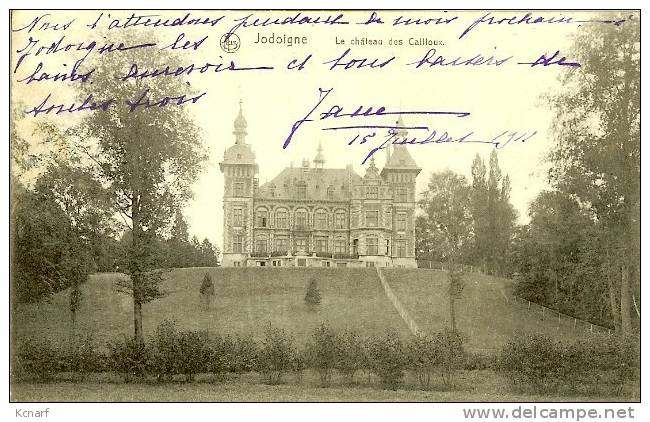 Nous t'attendons pendant le mois prochain à
Jodoigne les
Jodoigne Le château des Cailloux.
bains au revoir et tous baisers de
toutes trois
Jane
15 Juillet 1911
Kcnarf
www.delcampe.net